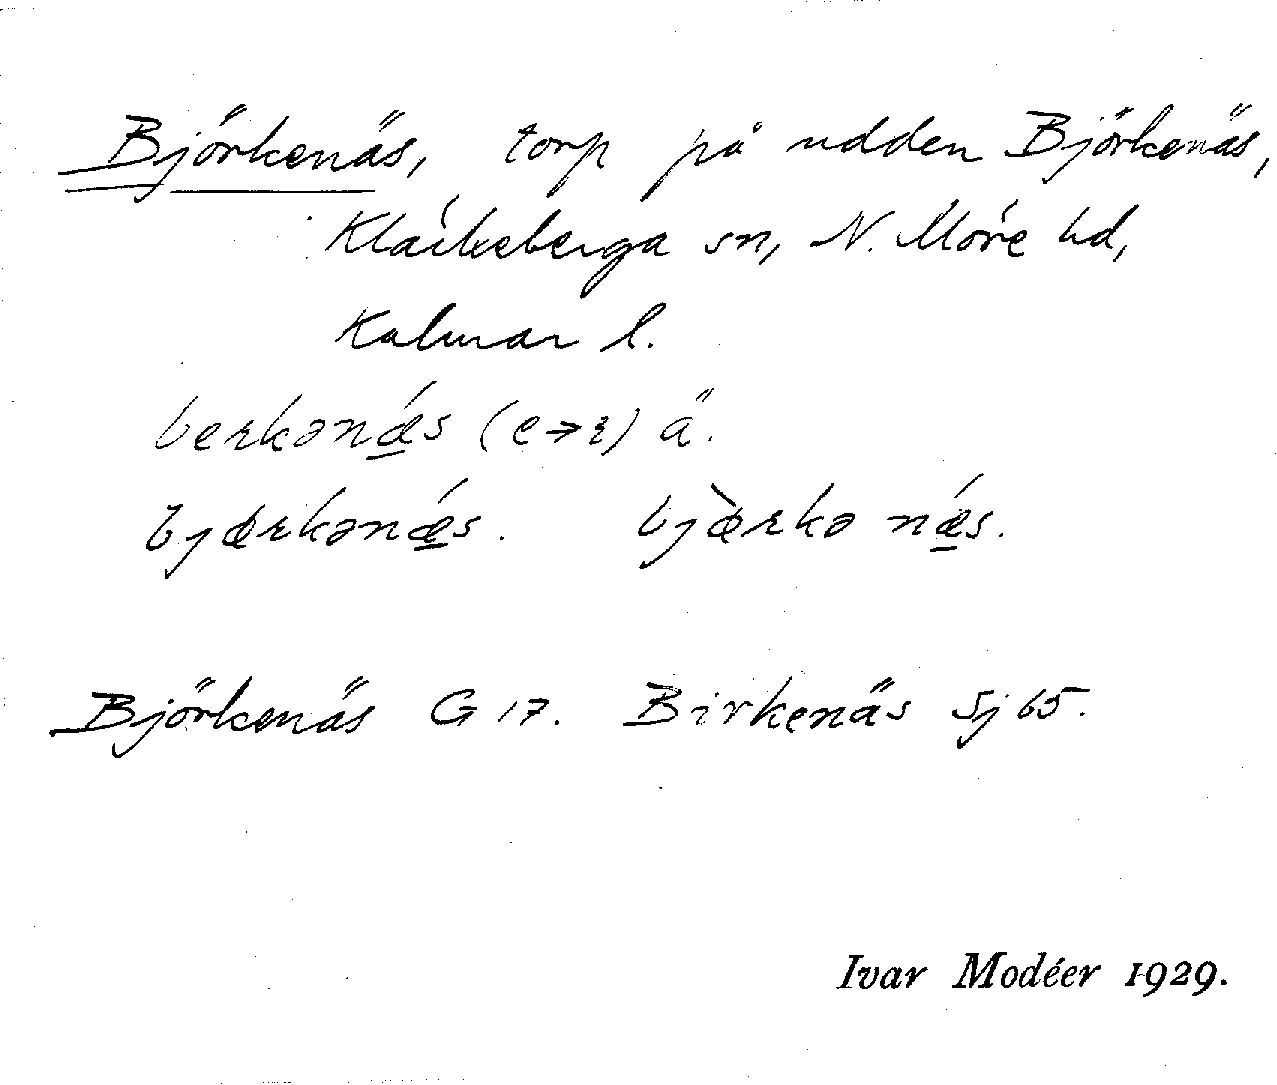 Björkenäs, torp på udden Björkenäs,
Kläckeberga sn, N. Möre hd,
Kalmar l.
berkənǽs (e→ɪ) ä.
bjærkənǽs. bjæ̀rkə nǽs.
Björkenäs G 17. Birkenäs Sj 65.
Ivar Modéer 1929.